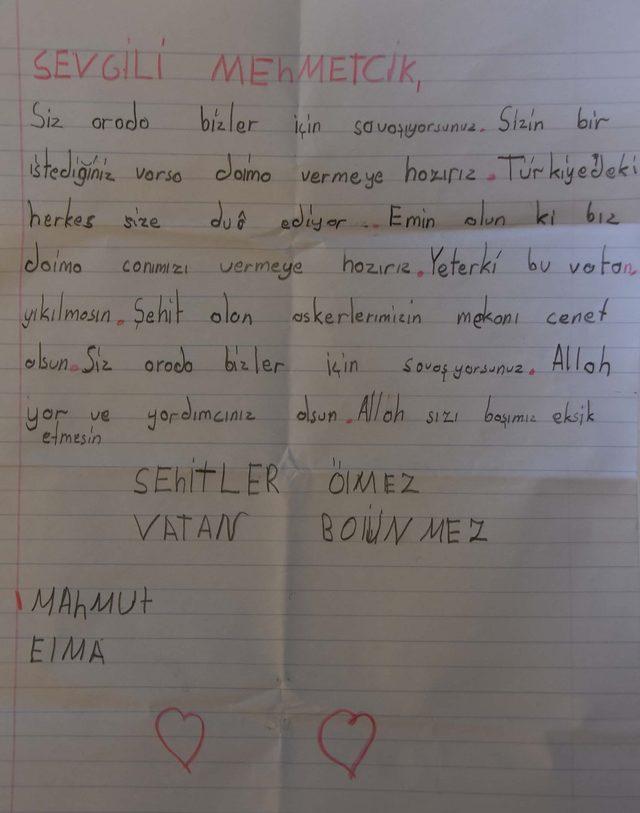 SEVGİLİ MEhMETCİK,
Siz orada bizler için savaşıyorsunuz. Sizin bir
istediğiniz varsa daima vermeye hazırız. Türkiyedeki
herkes size duâ ediyor.. Emin olun ki biz
daima canımızı vermeye hazırız. Yeterki bu vatan
yıkılmasın. Şehit olan askerlerimizin mekanı cenet
olsun. Siz orada bizler için savaşyorsunuz. Allah
yar ve yardımcınız olsun. Allah sızı başımız eksik
etmesin
SEhİTLER ÖlMEZ
VATAN BOlÜNMEZ
MAhMUt
ElMA